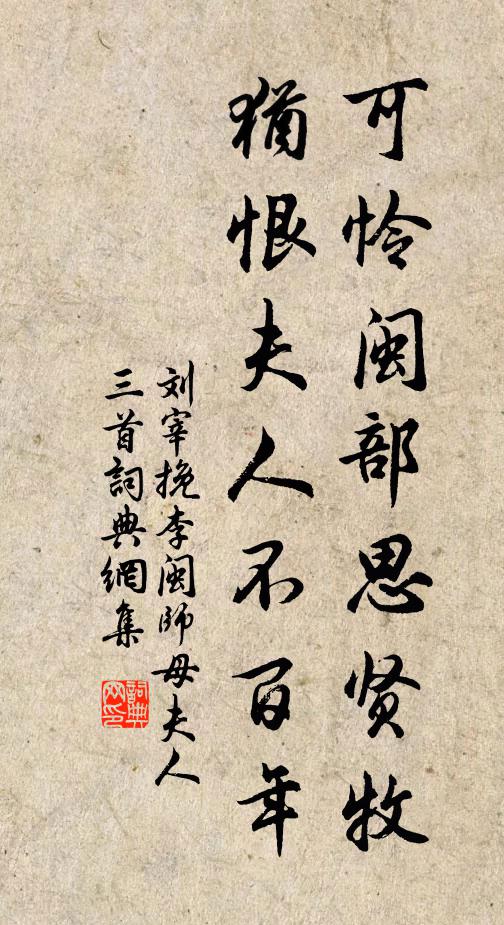 可怜闽部思贤牧
猶恨夫人不百年
刘宰挽李闽師母夫人
三首詞典網集
詞典网印